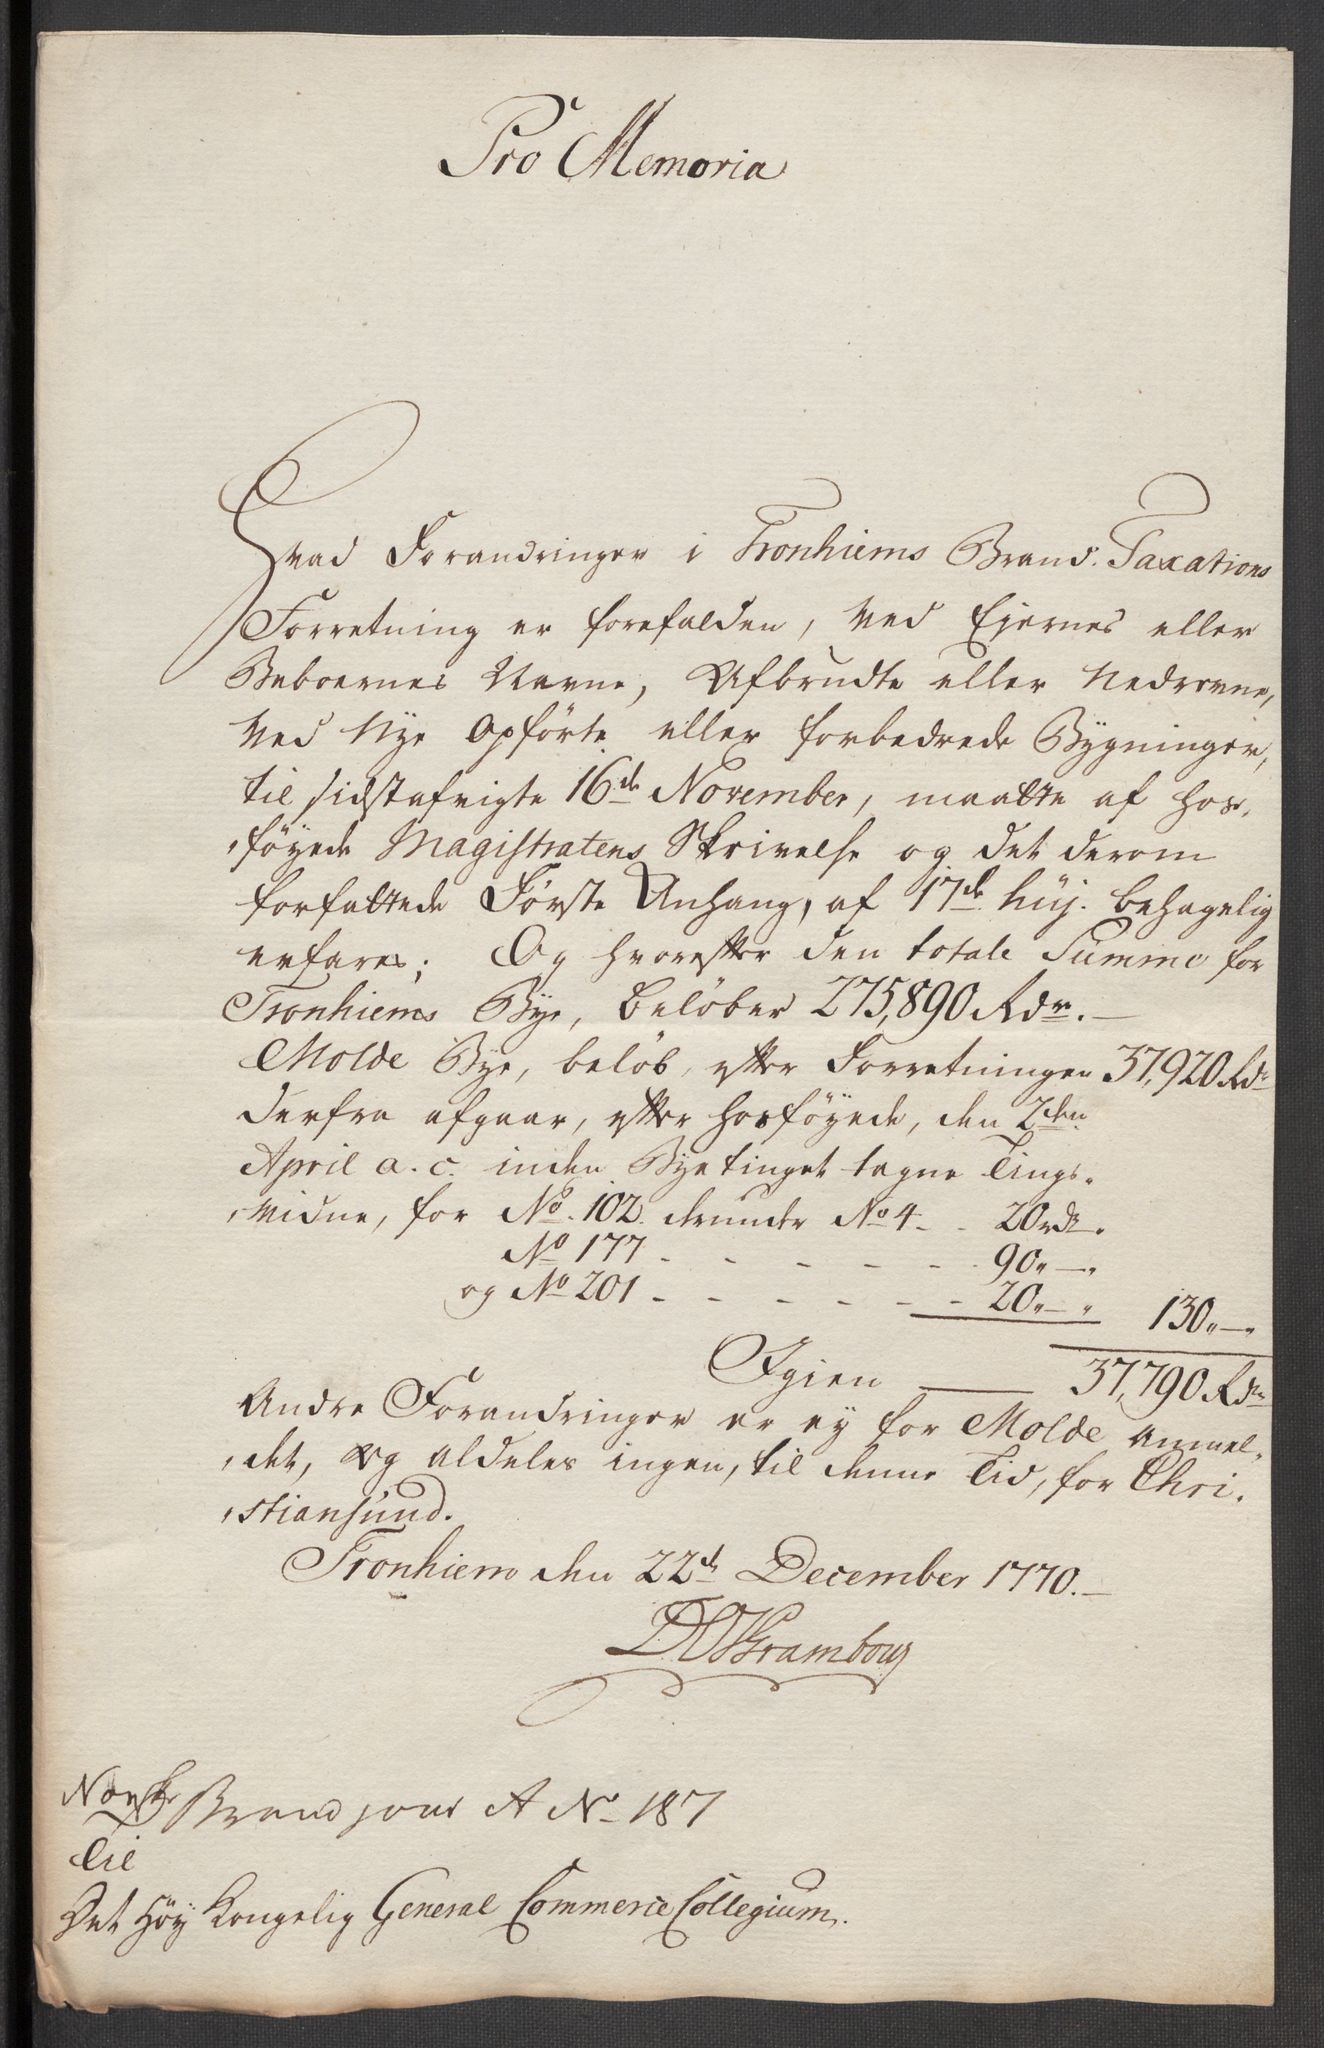 Pro Memoria
Hvad Forandringer i Tronhiems Brand-Taxations
Forretning er forefalden, ved Ejernes eller
Beboernes Navne, Afbrudte eller Nedrevne,
ved Nye Opförte eller forbedrede Bygninger,
til sidstafvigte 16de November, maatte af hos-
föyede Magistratens Skrivelse og det derom
forfattede Første Anhang, af 17de huj. behagelig
erfares; Og hvorefter den totale Summa for
Tronhiems Bye, beløber 275,890 Rdr. —
Molde Bye, beløb, efter Forretningen 37,920 Rdr
derfra afgaar, efter hosföyede, den 2den
April a. c. inden Byetinget tagne Tings-
vidne, for No. 102. derunder No 4 - - 20 rdr.
No 177 - - - - - - 90 „ — „
og No 201 - - - - - - 20 „ — „ 130 „ — „
Igien — 37,790 Rdr
Andre Forandringer er ey for Molde anmel-
det, og aldeles ingen, til denne Tid, for Chri-
stiansund.
Tronhiem den 22de December 1770. —
Norske Brand jour A No 187
Til
Det Höy Kongelig General Commerce Collegium.